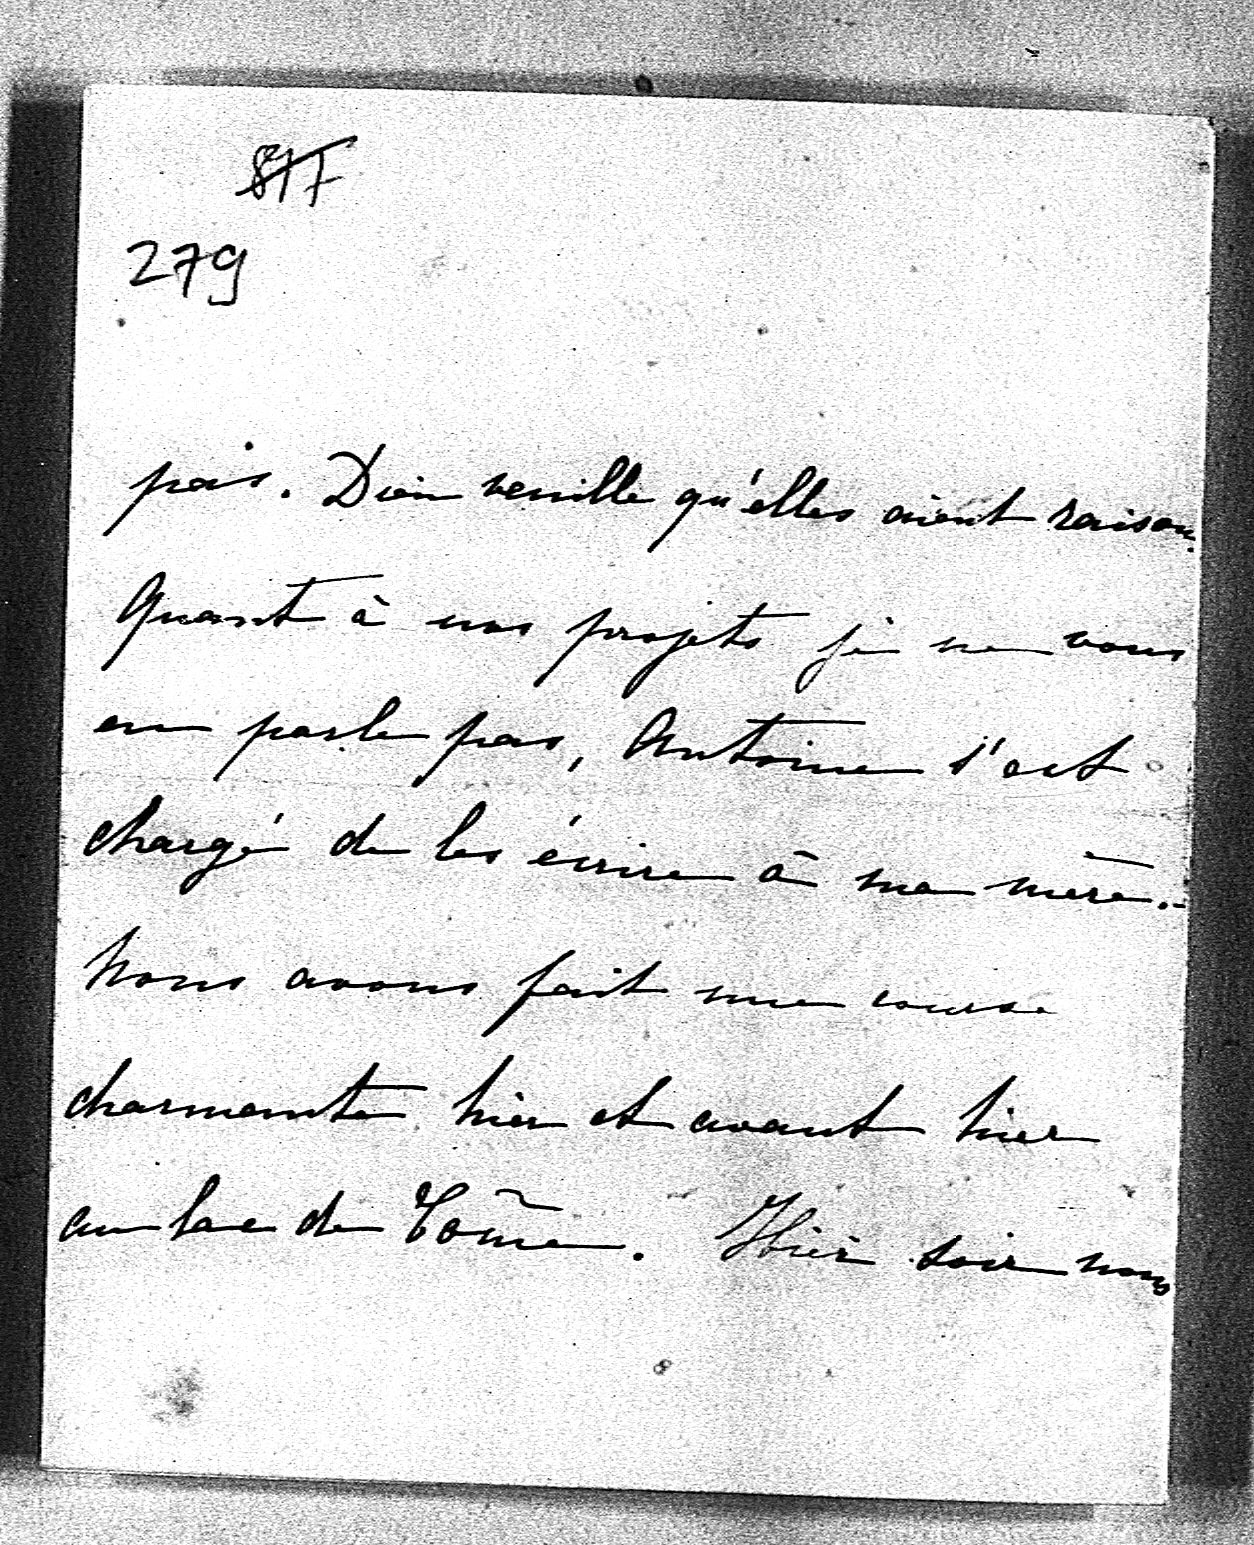 817
279
pais. Dieu veuille qu'elles aient raison.
Quant à nos projets je ne vous
en parle pas, Antoine s'est
chargé de les écrire à ma mère.-
Nous avons fait une course
charmante hier et avant hier
au lac de Côme. Hier soir nous